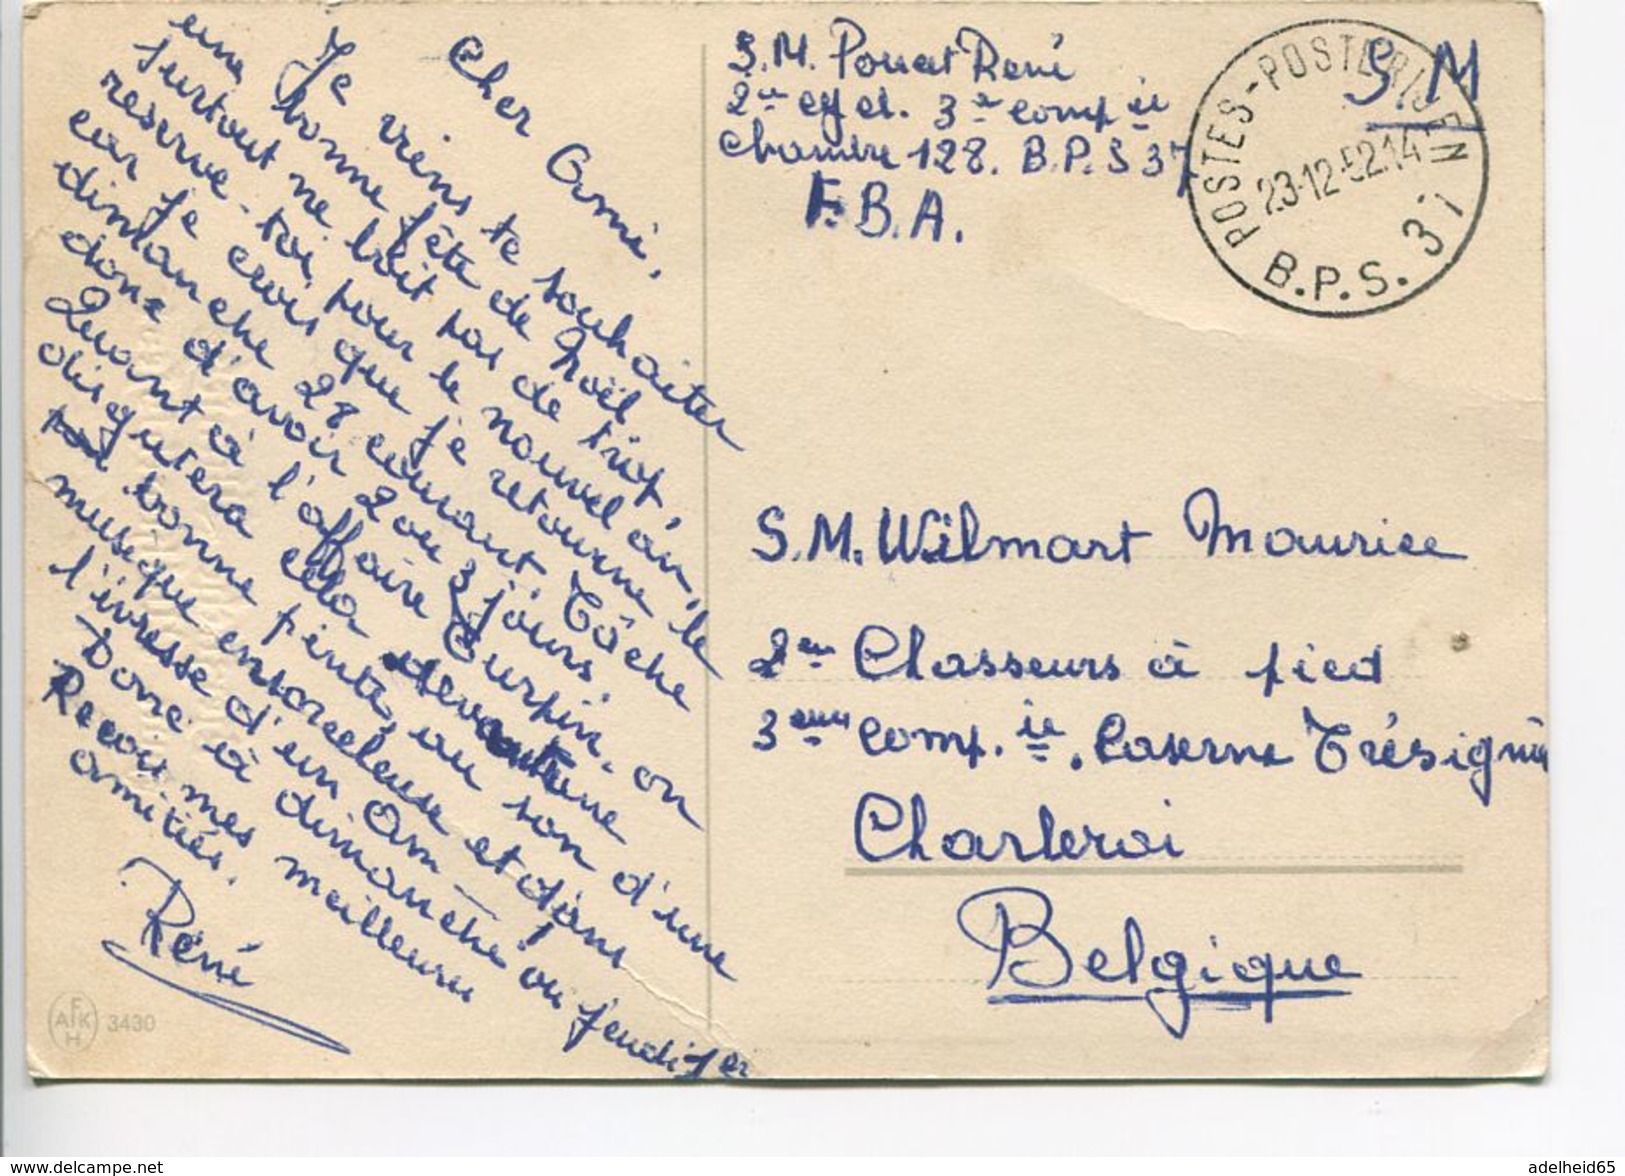 Cher Ami,
Je viens te souhaiter
une bonne fête de Noël
surtout ne boit pas de trop,
reserve-toi pour le nouvel an,
car je crois que je retourne le
dimanche 28 courant. Tâche
donc d'avoir 2 ou 3 jours.
Quant à l'affaire Turpin. on
disqutera cela devant une
bonne pinte, au son d'une
museque ensorceleuse et dans
l'ivresse d'un am—
Donc à dimanche ou jeudi 1er
Recois mes meilleures
amitiés.
René
AFKH 3430
S.M. Pouat René
2ie cy cl. 3e compie
Chambre 128. B.P.S 37
F.B.A.
S.M
POSTES-POSTERIJEN
23-12-52.14
B.P.S. 37
S.M. Wilmart Maurice
2em Chasseurs à pied
3eme Comp.ie. Caserne Trésignie
Charleroi
Belgique
www.delcampe.net
adelheid65